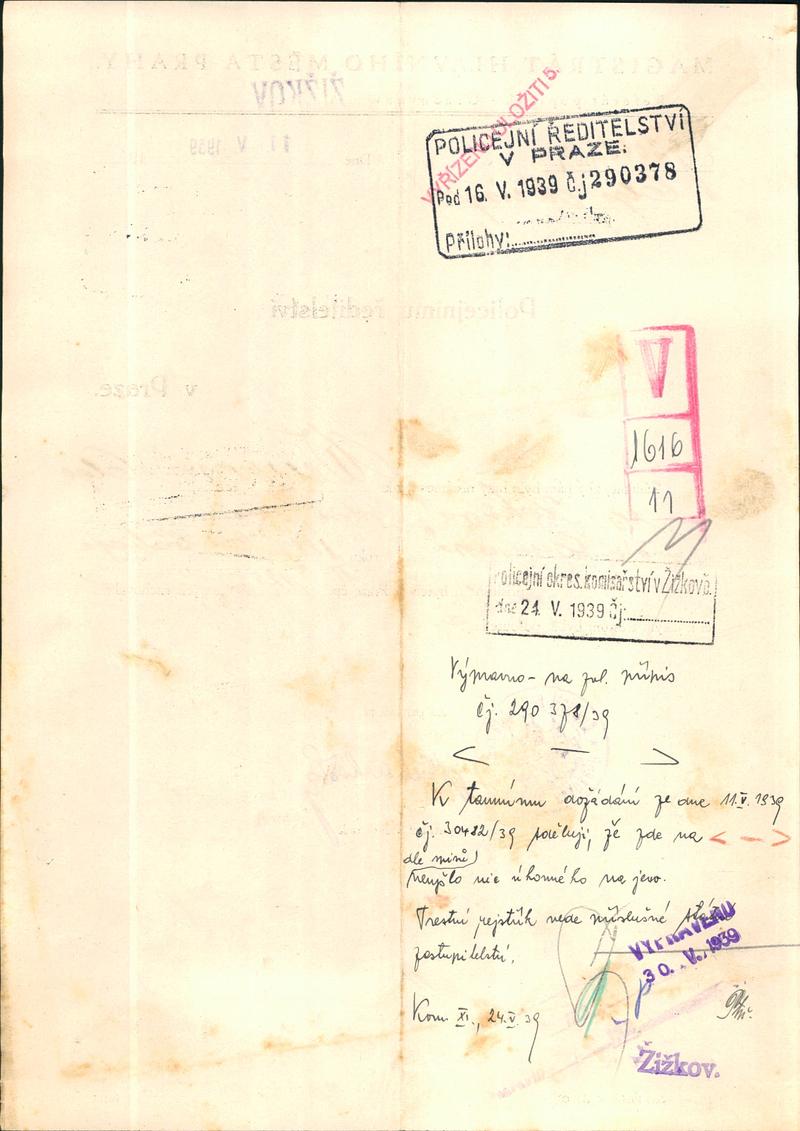 MAGISTRÁT HLAVNÍHO MĚSTA PRAHY.
ŽIŽKOV
11 V 1939
VYŘÍZENO ULOŽITI 5.
POLICEJNÍ ŘEDITELSTVÍ
V PRAZE.
Pod 16. V. 1939 č.j 290378
Přílohy:
Policejnímu ředitelství
v Praze.
V
1616
11
Policejní okres. komisařství v Žižkově.
dne 24. V. 1939 čj.
na pol. přípis
čj. 290 378/39
K tamnímu dožádání ze dne 11.V.1939
čj. 30482/39 sděluji, že zde na
dle
nevyšlo nic úhonného na jevo.
Trestní rejstřík vede příslušné státní
zastupitelství.
VYPRAVENO
30. V. 1939
Kom. XI., 24.V.39
Žižkov.